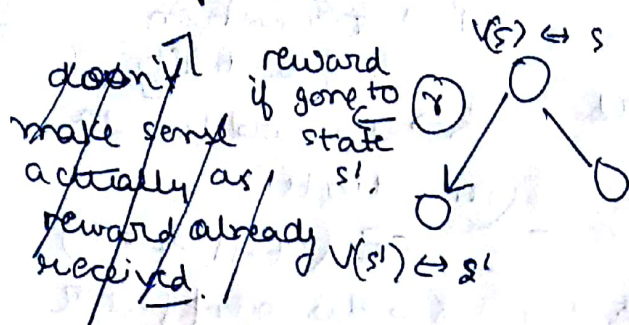 doesn't
make sense
actually as
reward already
received.
reward
if gone to
state
s'.
r
V(s) ↔ s
V(s') ↔ s'